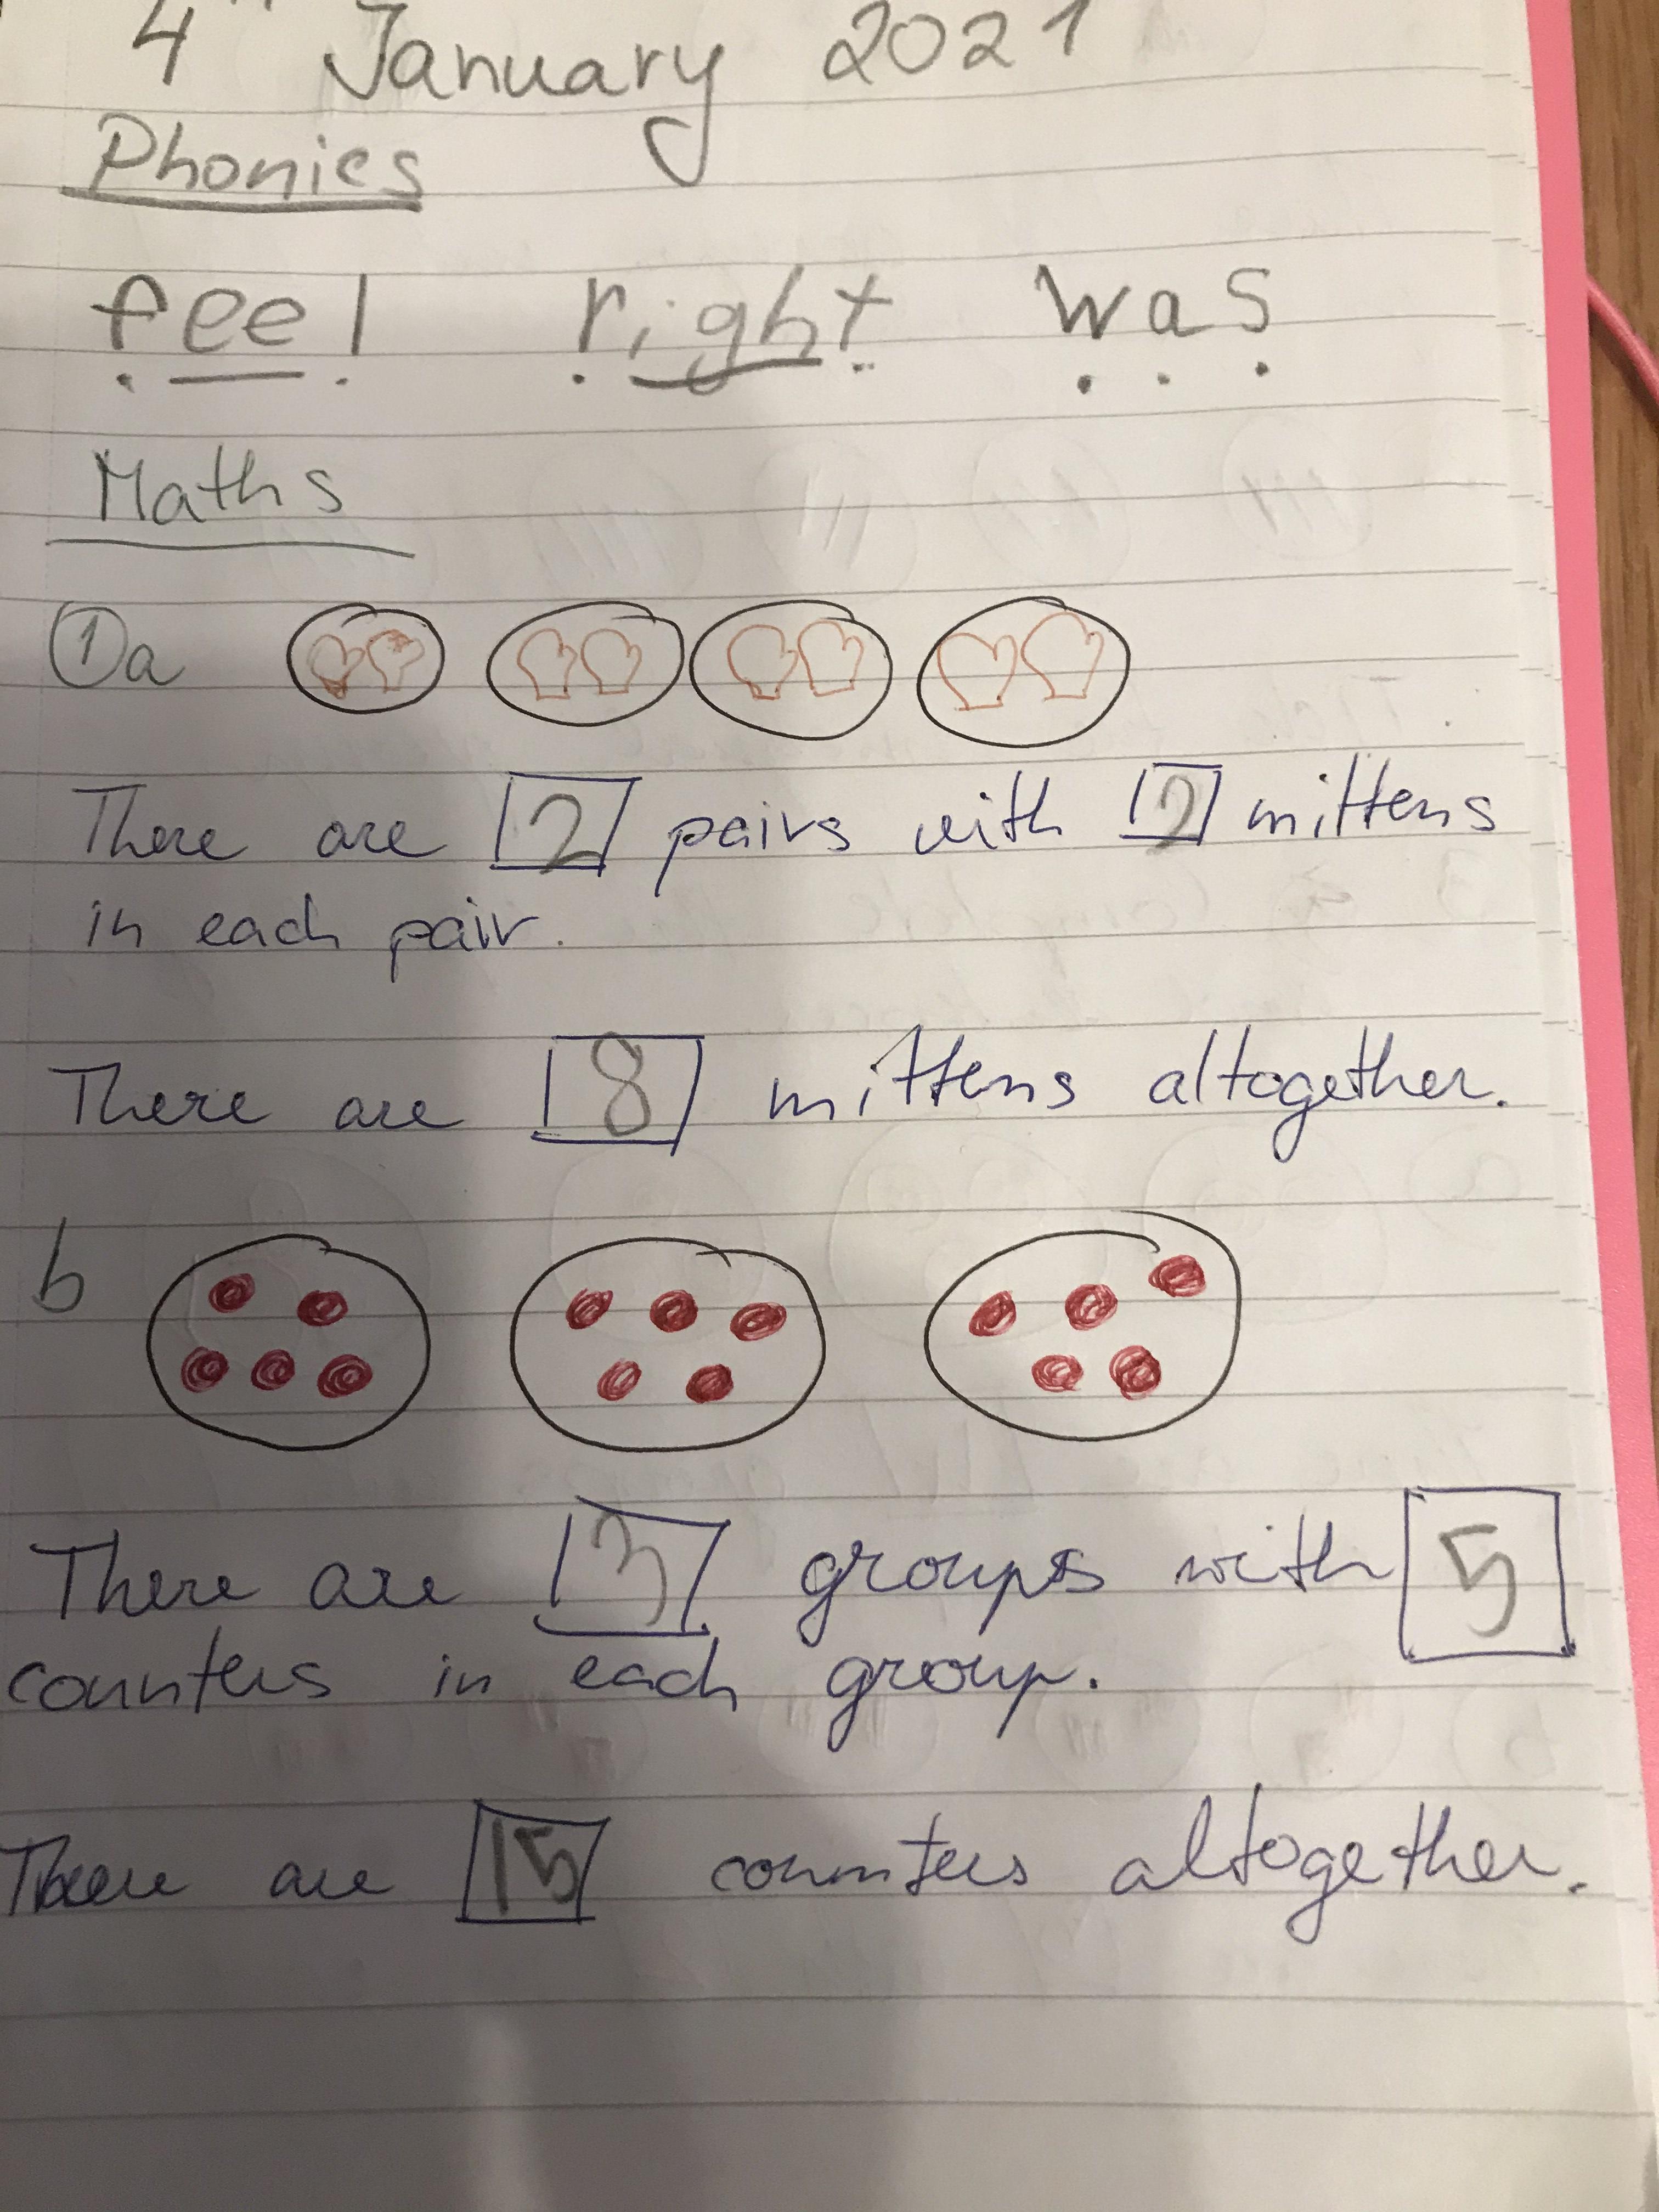 4th January 2021
Phonics
feel right was
Maths
1 a
There are 2 pairs with 2 mittens
in each pair.
There are 8 mittens altogether.
b
There are 3 groups with 5
counters in each group.
There are 15 counters altogether.